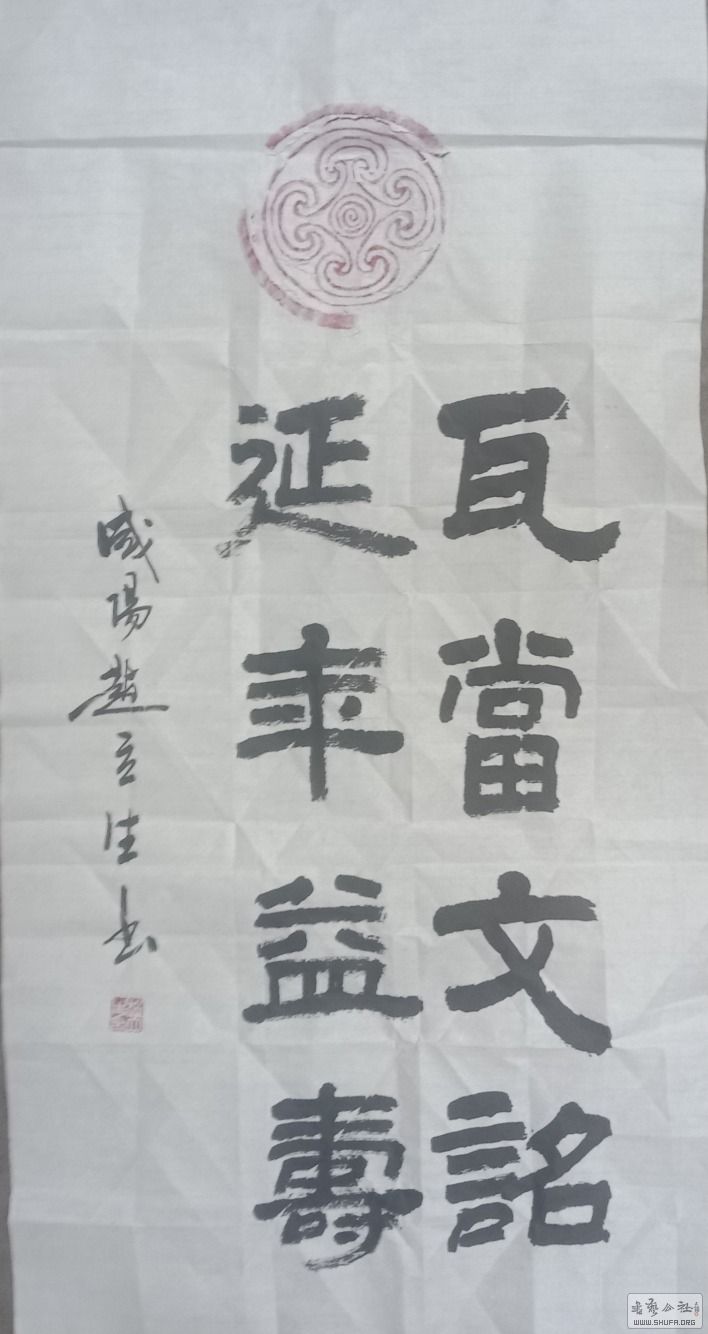 瓦當文詺
延年益壽
咸陽趙立生书
書藝公社
WWW.SHUFA.ORG